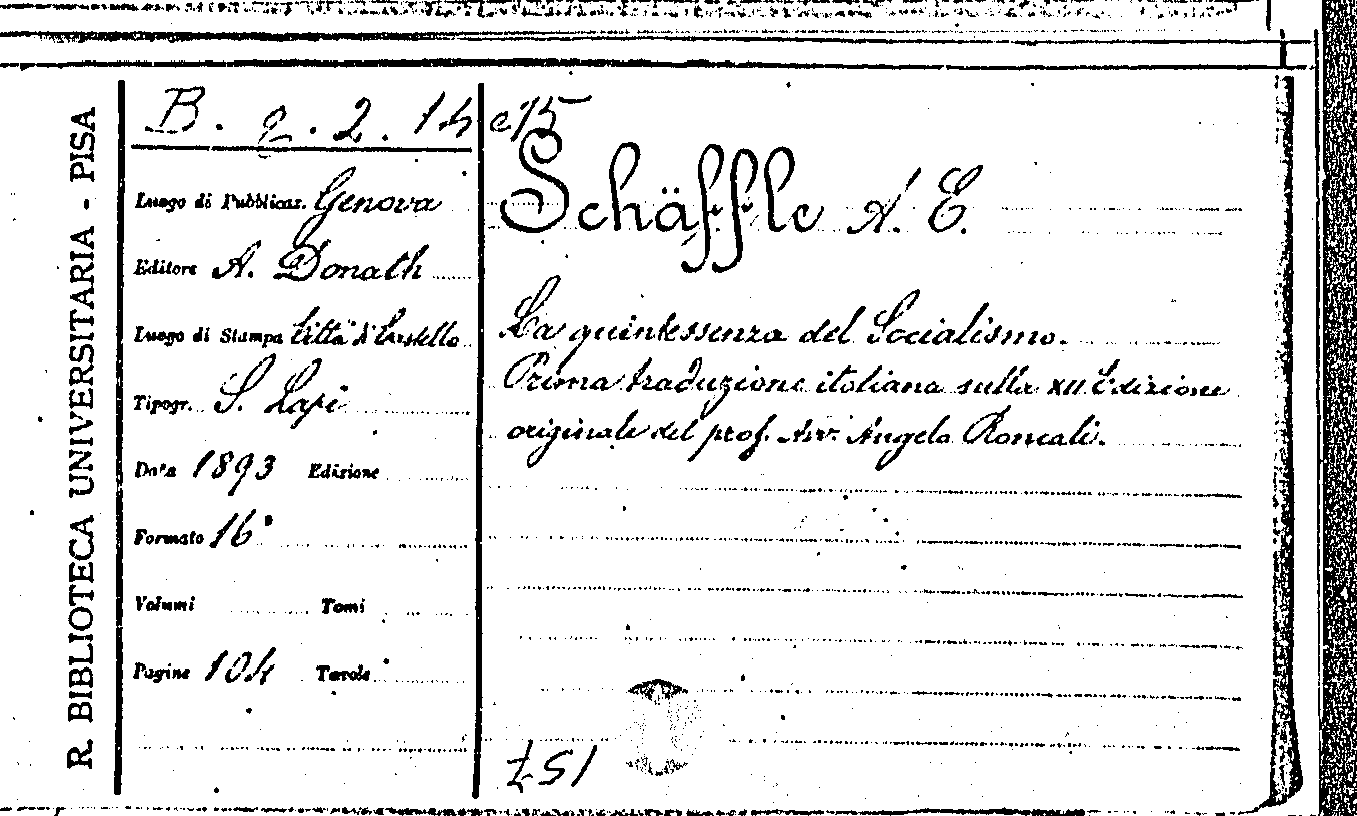 R. BIBLIOTECA UNIVERSITARIA - PISA
B. q. 2. 14 e 15
Luogo di Pubblicaz. Genova
Editore A. Donath
Luogo di Stampa Città di Castello
Tipogr. S. Lapi
Data 1893 Edizione
Formato 16°
Volumi Tomi
Pagine 104 Tavole
Schäffle A. E.
La quintessenza del Socialismo.
Prima traduzione italiana sulla XII Edizione
originale del prof. Avv. Angelo Roncali.